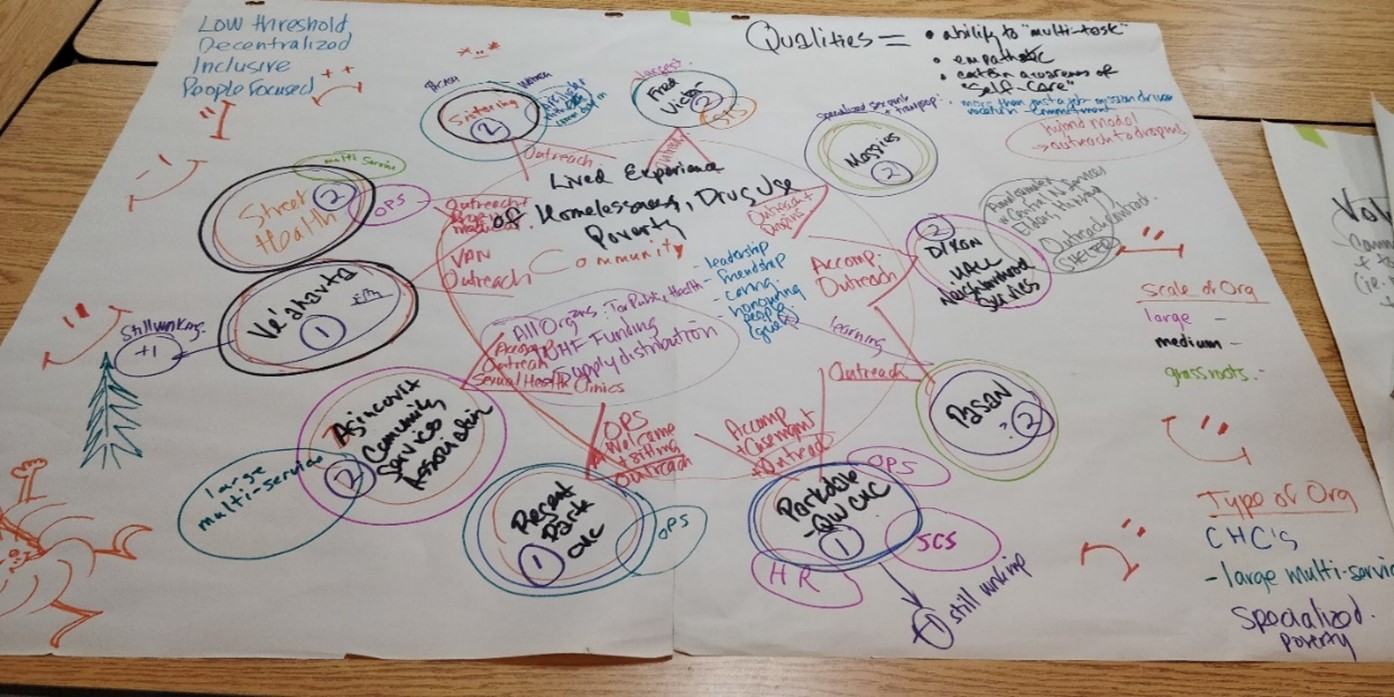 Low threshold
Decentralized
Inclusive
People Focused
Qualities =
• ability to "multi-task"
• empathetic
• certain awareness of
"self-care"
• more than just a job - mission driven
vocation - commitment
hybrid model
→ outreach to dropins
Women
Sistering
2
Outreach
largest
Fred
Victor
2
OPS
Outreach
specialized sex work
+ transpop.
Maggies
2
Outreach +
Dropins
multi service
Street
Health
2
OPS
Outreach +
VAN
Outreach
Lived Experience
of Homelessness, Drug Use
Poverty
Community
- leadership
- friendship
- caring
- honouring
people
2
Dixon
Hall
Neighbourhood
Services
Outreach
SHELTER
Accomp.
Outreach
Ve'ahavta
1
Still working.
+1
All Organs: Tor Public Health
UHF Funding
Supply distribution
Accomp
Outreach
Sexual Health Clinics
learning
Outreach
Pasan
2
Scale of Org
large -
medium -
grassroots -
Asincovit
Community
Services
Association
2
large
multi-service
OPS
Welcome
+ sitting
Outreach
Regent
Park
CHC
1
OPS
Accomp
+ Casemgnt
+ Outreach
Parkdale
-QW CHC
1
OPS
SCS
HR
still working
Type of Org
CHC's
- large multi-servic
Specialized.
Poverty
Vol
(ie.